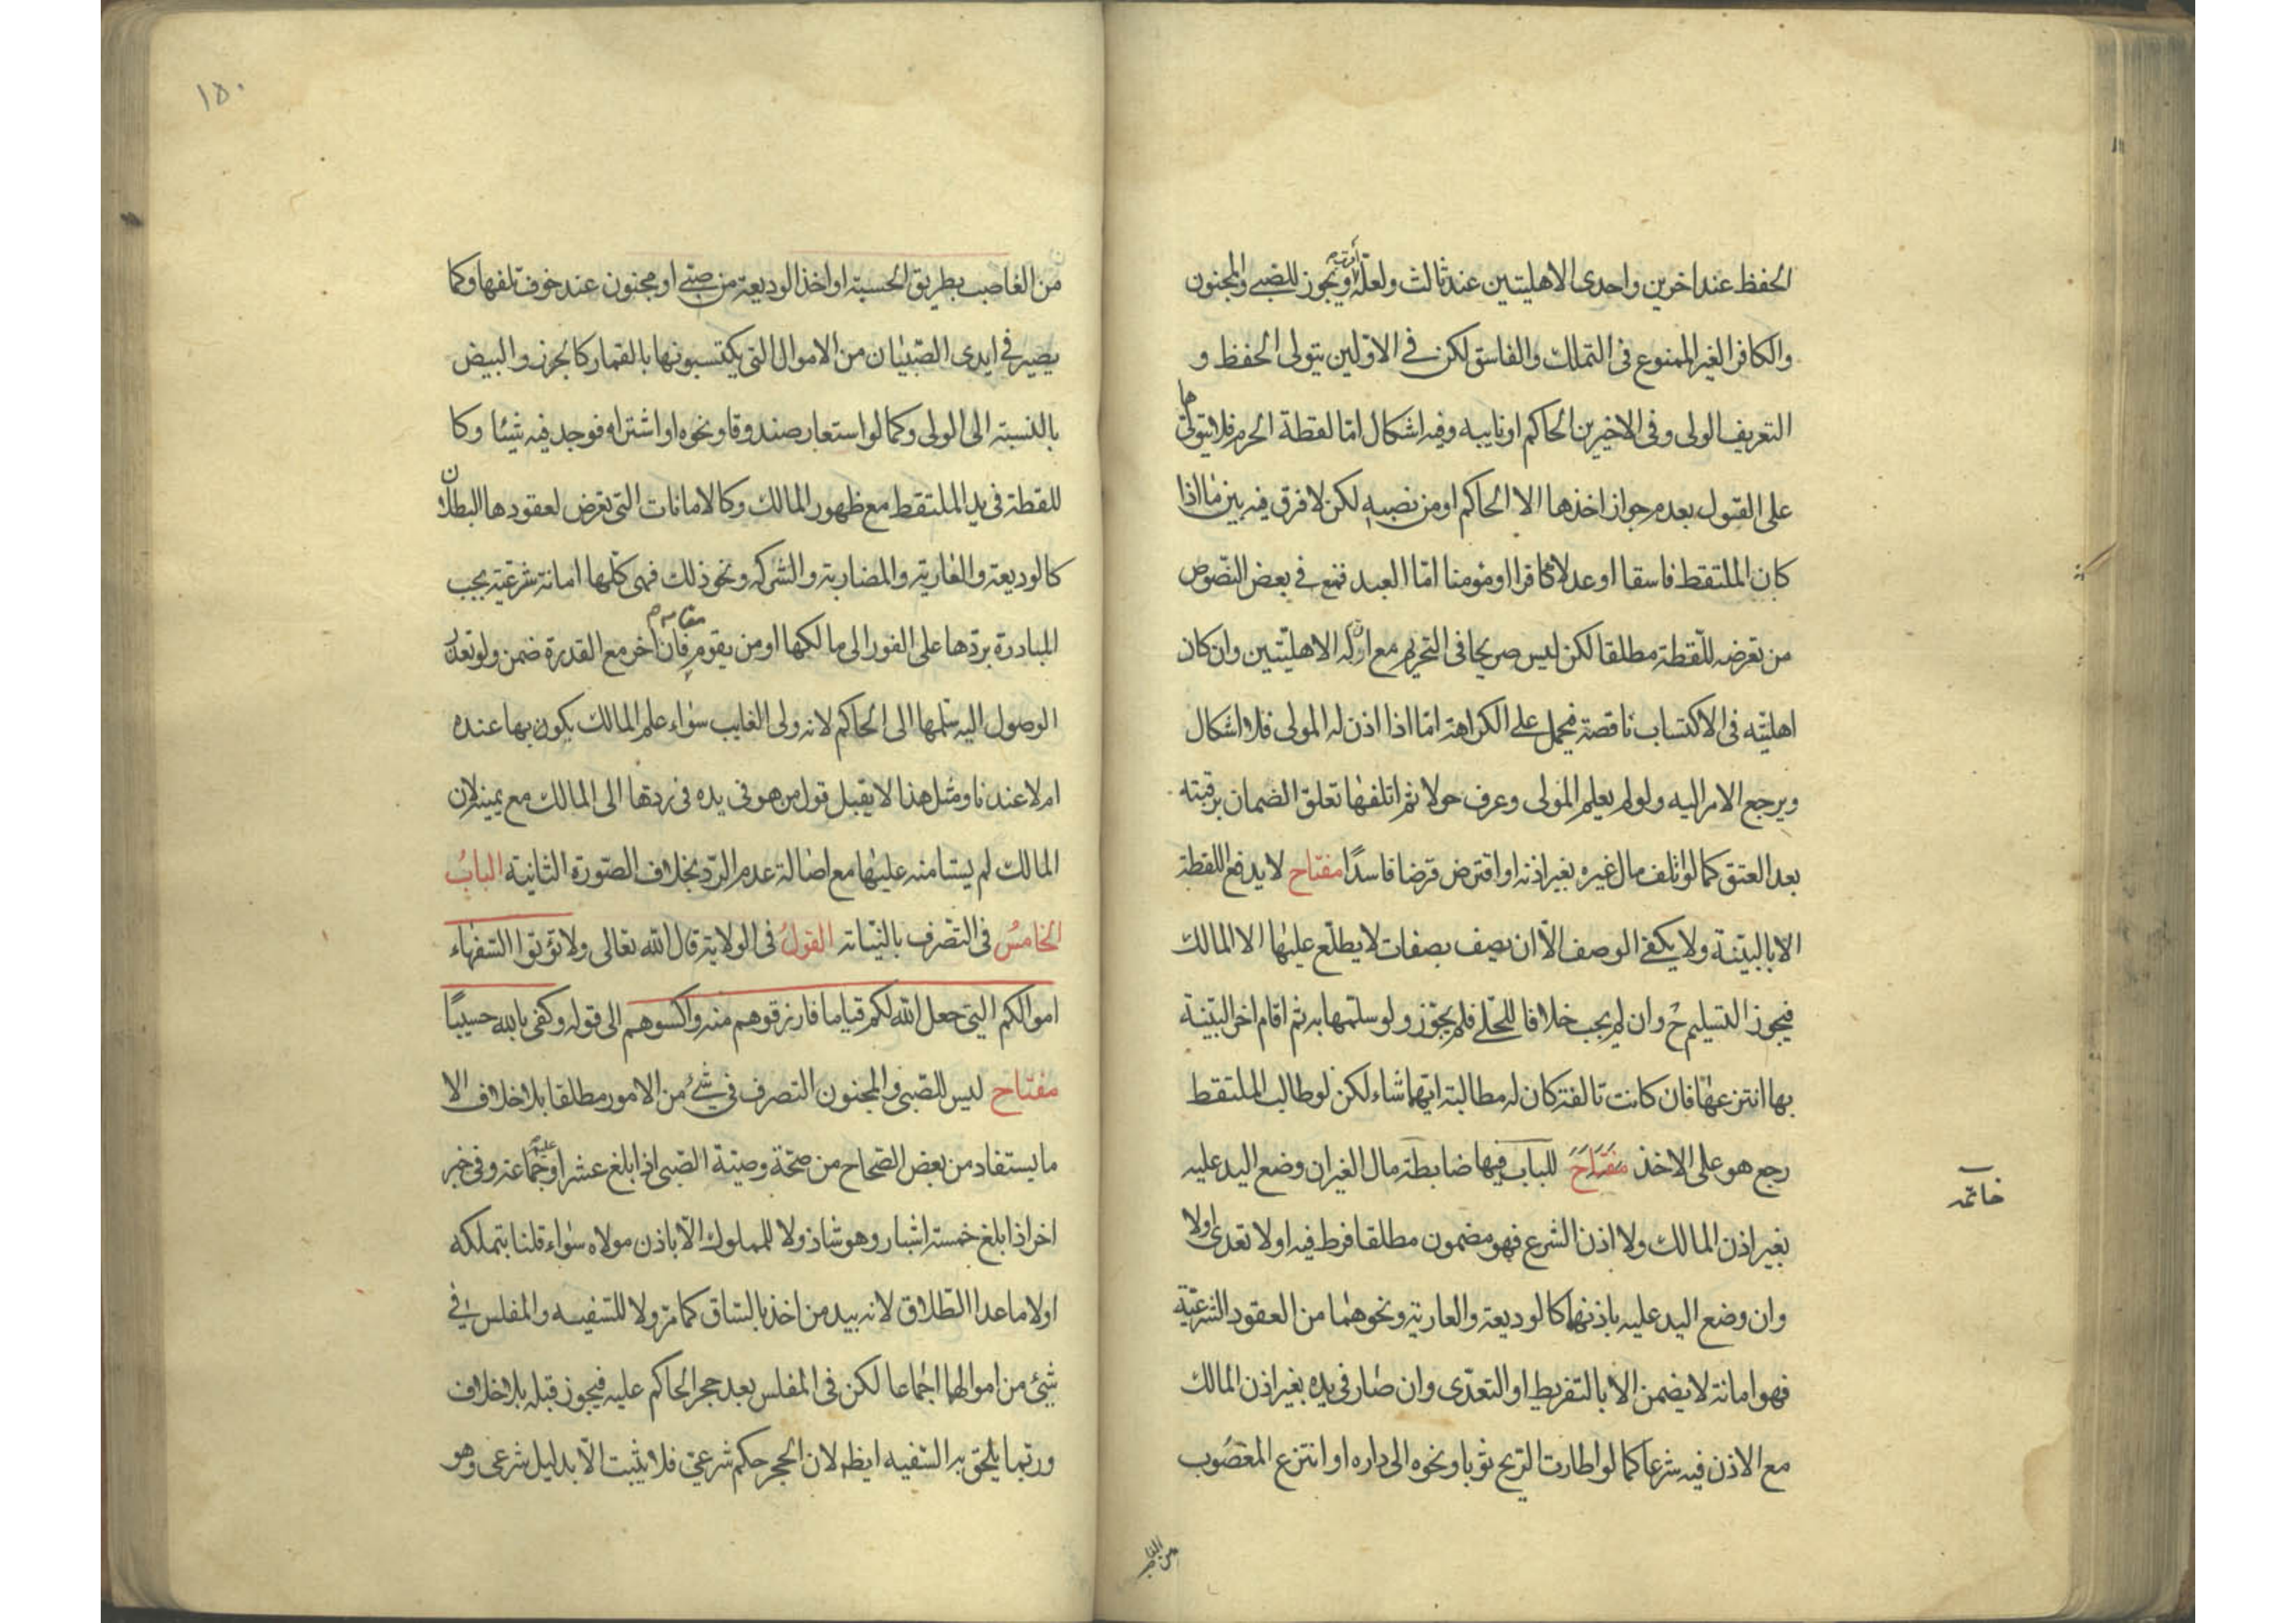 الحفظ عند اخرين واحدى الاهليتين عند ثالث ولعله اثبت ويجوز للصبى والمجنون
والكافر الغير الممنوع فى التملك والفاسق لكن فى الاولين يتولى الحفظ و
التعريف الولى وفى الاخيرين الحاكم او نايبه وفيه اشكال امّا لقطة الحرم فلا يتولاها
على القول بعدم جواز اخذها الا الحاكم او من نصبه لكن لا فرق فيه بين ما اذا
كان الملتقط فاسقا او عدلا كافرا او مؤمنا امّا العبد فمنع فى بعض النصوص
من تعرضه للقطة مطلقا لكن ليس صريحا فى التحريم مع ان له الاهليّتين وان كان
اهليّته فى الاكتساب ناقصة فيحمل على الكراهة امّا اذا اذن له المولى فلا اشكال
ويرجع الامر اليه ولو لم يعلم المولى وعرف حولا ثم اتلفها تعلق الضمان برقبته
بعد العتق كما لو اتلف مال غيره بغير اذنه او اقترض قرضا فاسدًا مفتاح لا يدفع اللقطة
الا بالبيّنة ولا يكفى الوصف الّا ان يصف بصفات لا يطلع عليها الا المالك
فيجوز التسليم ح وان لم يجب خلافا للحلى فلم يجوّز ولو سلمها به ثم اقام اخر البيّنة
بها انتزعها فان كانت تالفة كان له مطالبة ايهما شاء لكن لو طالب الملتقط
رجع هو على الاخذ مفتاح للباب فيها ضابطة مال الغير ان وضع اليد عليه
خاتمه
بغير اذن المالك ولا اذن الشرع فهو مضمون مطلقا فرط فيه اولا تعدى اولا
وان وضع اليد عليه باذنهما كالوديعة والعارية ونحوهما من العقود الشرعيّة
فهو امانة لا يضمن الا بالتفريط او التعدّى وان صار فى يده بغير اذن المالك
مع الاذن فيه شرعا كما لو اطارت الريح ثوبا ونحوه الى داره او انتزع المغصوب
١٥٠
من الغاصب بطريق الحسبة او اخذ الوديعة من صبى او مجنون عند خوف تلفها وكما
يصير فى ايدى الصّبيان من الاموال التى يكتسبونها بالقمار كالجوز والبيض
بالنسبة الى الولى وكما لو استعار صندوقا ونحوه او اشتراه فوجد فيه شيئا وكا
للقطة فى يد الملتقط مع ظهور المالك وكالامانات التى تعرض لعقودها البطلان
كالوديعة والعارية والمضاربة والشركه ونحو ذلك فهى كلّها امانة شرعيّة يجب
المبادرة بردّها على الفور الى مالكها او من يقوم مقامه فان اخر مع القدرة ضمن ولو تعذر
الوصول اليه سلمها الى الحاكم لانه ولى الغايب سواء علم المالك بكونها عنده
ام لا عندنا ومثل هذا لا يقبل قول من هو فى يده فى ردها الى المالك مع يمينه لان
المالك لم يستامنه عليها مع اصالة عدم الردّ بخلاف الصّورة الثانية البابُ
الخامسُ فى التصرف بالنيابة القولُ فى الولاية قال الله تعالى ولا تؤتوا السّفهاء
اموالكم التى جعل الله لكم قياما فارزقوهم منه واكسوهم الى قوله وكفى بالله حسيبًا
مفتاح ليس للصّبى والمجنون التصرف فى شئ من الامور مطلقا بلا خلاف الا
ما يستفاد من بعض الصّحاح من صحّة وصيّة الصّبى اذا بلغ عشرا وعليه جماعة وفى خبر
اخر اذا بلغ خمسة اشبار وهو شاذ ولا للمملوك الّا باذن مولاه سواء قلنا بتملكه
اولا ما عدا الطّلاق لانه بيد من اخذ بالسّاق كما مرّ ولا للسّفيه والمفلس فى
شئ من اموالهما اجماعا لكن فى المفلس بعد حجر الحاكم عليه فيجوز قبله بلا خلاف
وربّما يلحق به السّفيه ايظا لان الحجر حكم شرعىّ فلا يثبت الّا بدليل شرعى وهو